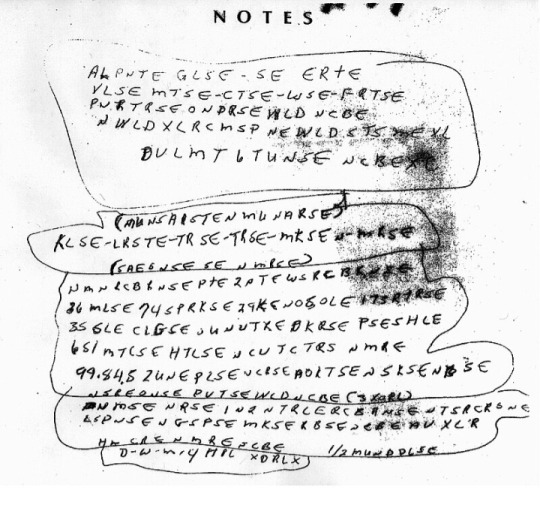 NOTES
ALPNTE GLSE-SE ERTE
VLSE MTSE-CTSE-WSE-FRTSE
PNRTRSEONDRSEWLD NCBE
NWLDXLRCMSP NEWLDSTSMEXL
DULMT6TUNSE NCBEXC
(MUNSAISTENMUNARSE)
KLSE-LRSTE-TRSE-TRSE-MKSEN-MRSE
(SAEGNSE SE NMRSE)
NMNRCBRNSEPTE2PTEWSRCBRNSE
36MLSE74SPRKSE29KENOSOLE173RTRSE
35GLE CLGSEOUNUTREDKRSE PSESHLE
651MTCSE HTLSE NCUTCTRS NMRE
99.84.52UNEPLSE NCRSE AOLTSENSKSENBSE
NSREONSE PUTSEWLDNCBE (3XORL)
NMSE NRSE IN2NTRLERCBRNSE NTSRCRSNE
LSPNSE NGSPSE MKSERBSENCBE AUXLR
HM CRE NMRE NCBE 1/2MUNDDLSE
D-W-M-Y HPL XDRLX